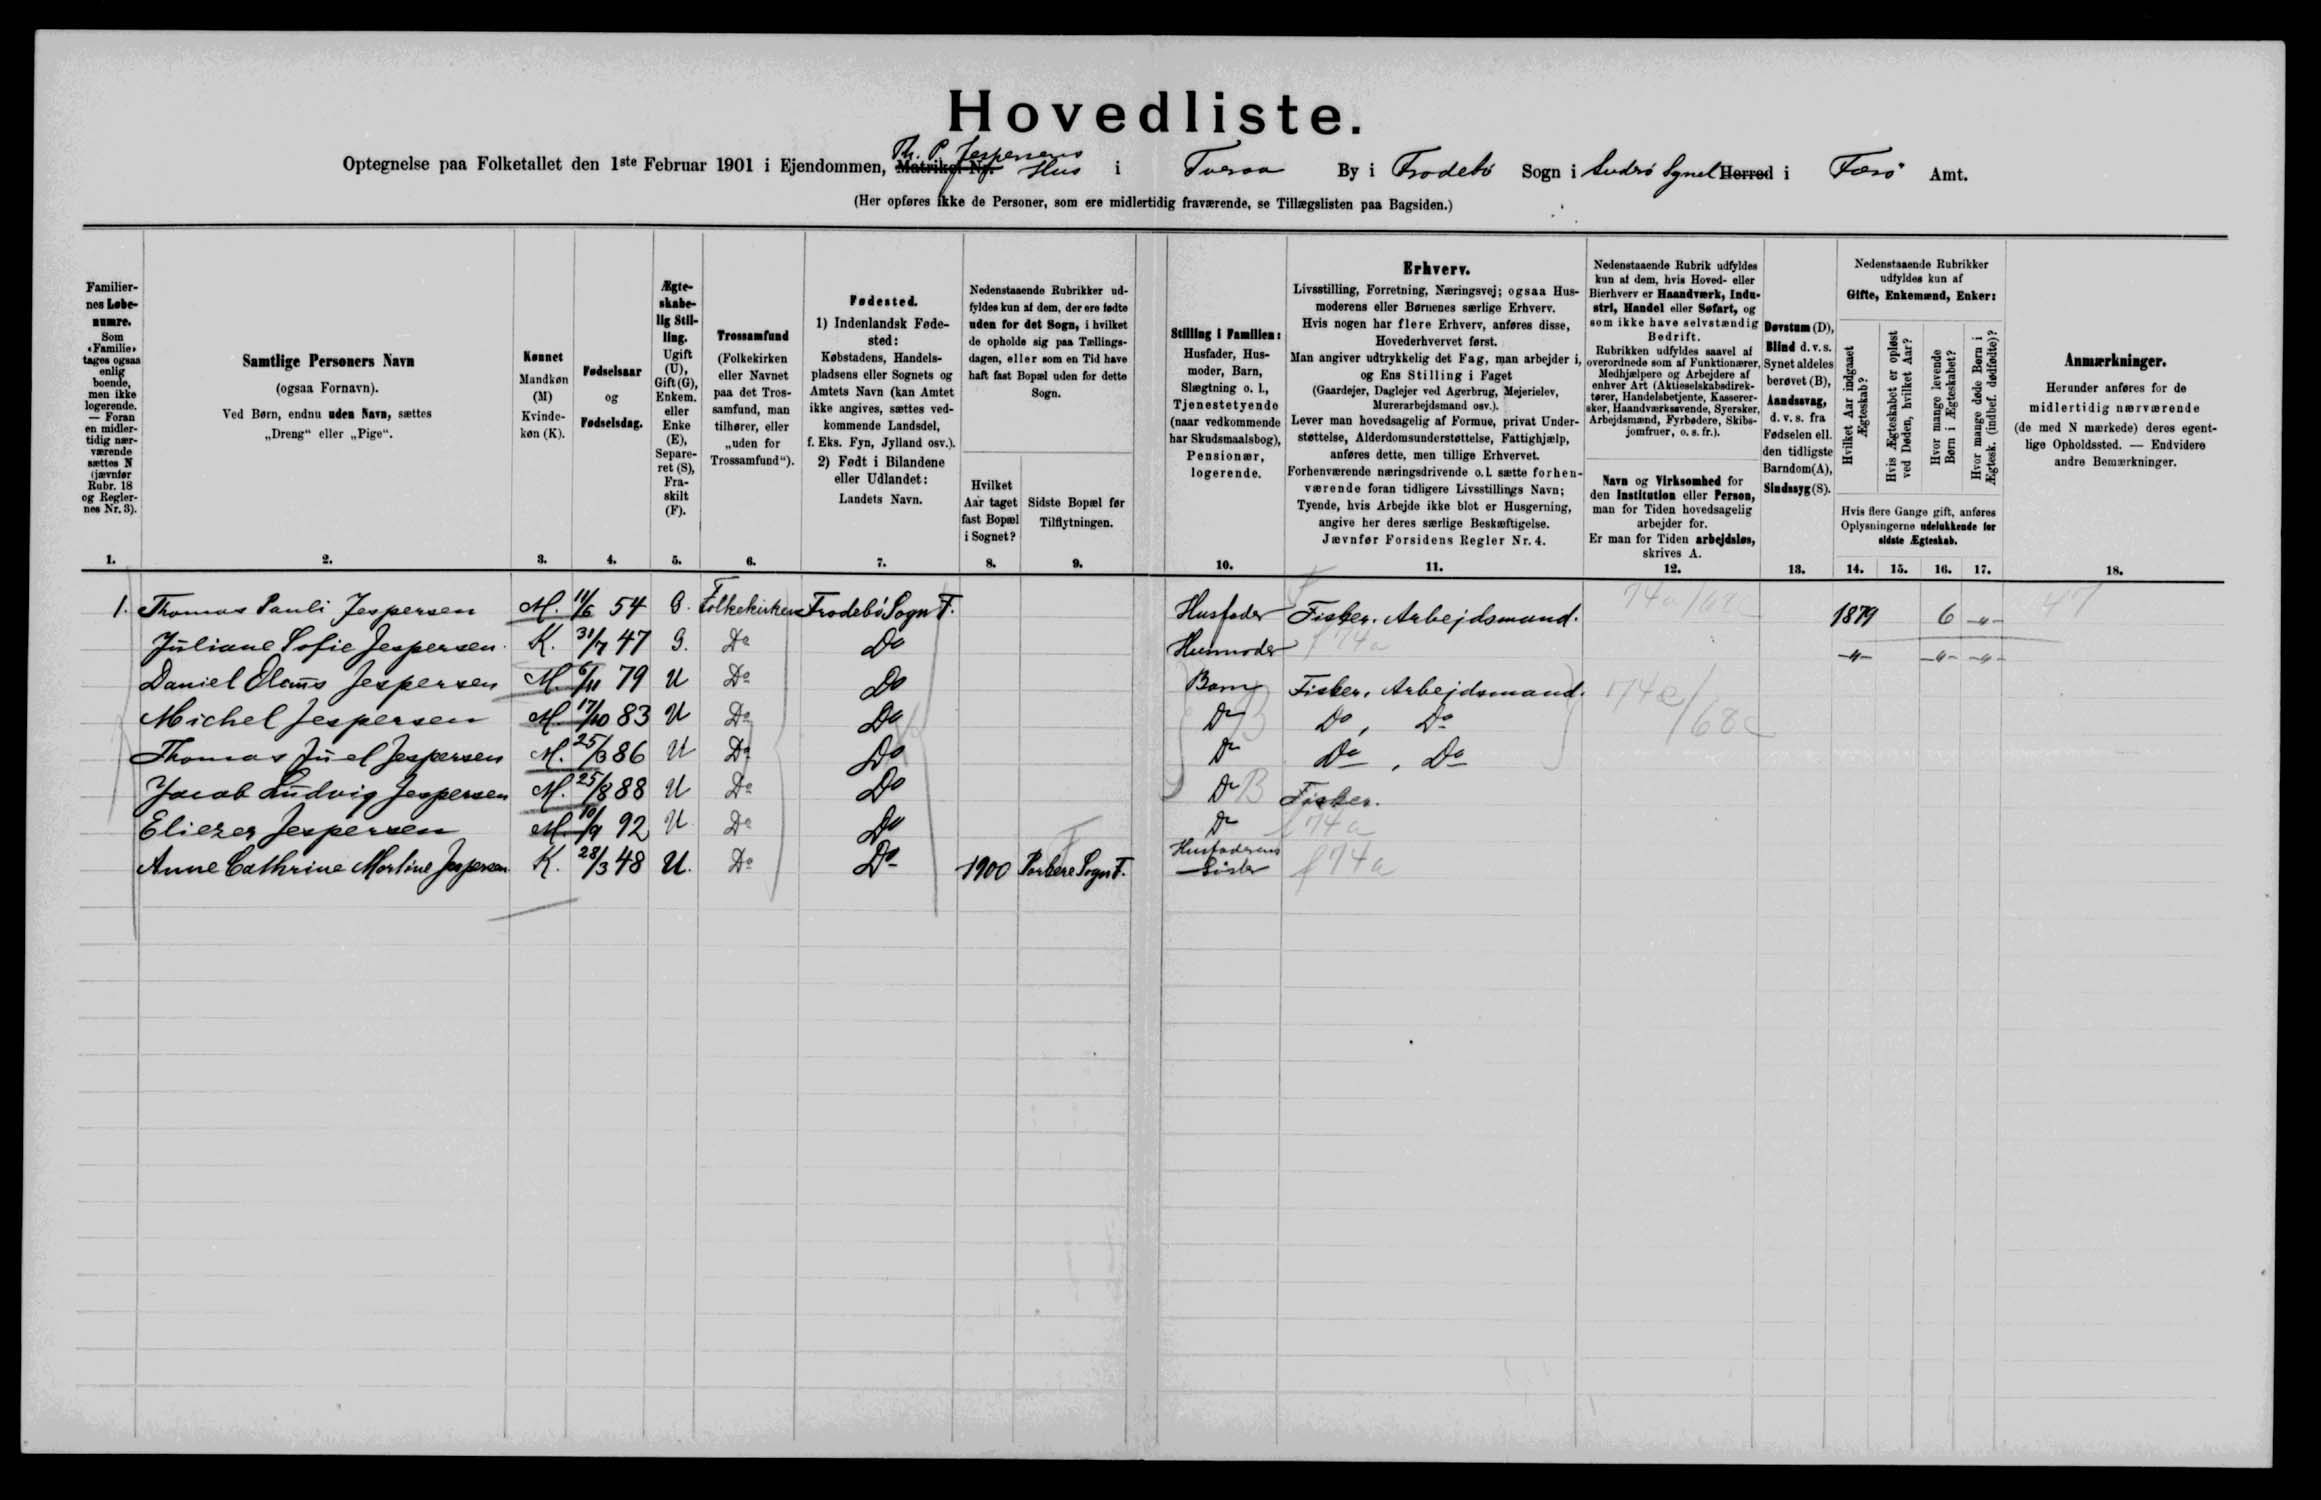 Hovedliste.
Optegnelse paa Folketallet den 1ste Februar 1901 i Ejendommen, Matrikel-Nr. Th. P. Jespersens Hus i Tveraa By i Frodebö Sogn i Suderö Syssel Herred i Færö Amt.
(Her opføres ikke de Personer, som ere midlertidig fraværende, se Tillægslisten paa Bagsiden.)
Familiernes Løbenumre.
Som «Familie» tages ogsaa enlig boende, men ikke logerende. — Foran en midlertidig nærværende sættes N (jævnfør Rubr. 18 og Reglernes Nr. 3).
1.
Samtlige Personers Navn
(ogsaa Fornavn).
Ved Børn, endnu uden Navn, sættes
„Dreng“ eller „Pige“.
2.
Kønnet
Mandkøn (M)
Kvindekøn (K).
3.
Fødselsaar
og
Fødselsdag.
4.
Ægteskabelig Stilling.
Ugift (U), Gift (G), Enkem. eller Enke (E), Separeret (S), Fraskilt (F).
5.
Trossamfund
(Folkekirken eller Navnet paa det Trossamfund, man tilhører, eller „uden for Trossamfund“).
6.
Fødested.
1) Indenlandsk Fødested:
Købstadens, Handelspladsens eller Sognets og Amtets Navn (kan Amtet ikke angives, sættes vedkommende Landsdel, f. Eks. Fyn, Jylland osv.).
2) Født i Bilandene eller Udlandet:
Landets Navn.
7.
Nedenstaaende Rubrikker udfyldes kun af dem, der ere fødte uden for det Sogn, i hvilket de opholde sig paa Tællingsdagen, eller som en Tid have haft fast Bopæl uden for dette Sogn.
Hvilket Aar taget fast Bopæl i Sognet?
8.
Sidste Bopæl før Tilflytningen.
9.
Stilling i Familien:
Husfader, Husmoder, Barn, Slægtning o. l., Tjenestetyende (naar vedkommende har Skudsmaalsbog), Pensionær, logerende.
10.
Erhverv.
Livsstilling, Forretning, Næringsvej; ogsaa Husmoderens eller Børnenes særlige Erhverv.
Hvis nogen har flere Erhverv, anføres disse, Hovederhvervet først.
Man angiver udtrykkelig det Fag, man arbejder i, og Ens Stilling i Faget
(Gaardejer, Daglejer ved Agerbrug, Mejerielev, Murerarbejdsmand osv.).
Lever man hovedsagelig af Formue, privat Understøttelse, Alderdomsunderstøttelse, Fattighjælp, anføres dette, men tillige Erhvervet.
Forhenværende næringsdrivende o. l. sætte forhenværende foran tidligere Livsstillings Navn;
Tyende, hvis Arbejde ikke blot er Husgerning, angive her deres særlige Beskæftigelse.
Jævnfør Forsidens Regler Nr. 4.
11.
Nedenstaaende Rubrik udfyldes kun af dem, hvis Hoved- eller Bierhverv er Haandværk, Industri, Handel eller Søfart, og som ikke have selvstændig Bedrift.
Rubrikken udfyldes saavel af overordnede som af Funktionærer, Medhjælpere og Arbejdere af enhver Art (Aktieselskabsdirektører, Handelsbetjente, Kasserersker, Haandværkssvende, Syersker, Arbejdsmænd, Fyrbødere, Skibsjomfruer, o. s. fr.).
Navn og Virksomhed for den Institution eller Person, man for Tiden hovedsagelig arbejder for.
Er man for Tiden arbejdsløs, skrives A.
12.
Døvstum (D), Blind d. v. s. Synet aldeles berøvet (B), Aandssvag, d. v. s. fra Fødselen ell. den tidligste Barndom (A), Sindssyg (S).
13.
Nedenstaaende Rubrikker udfyldes kun af
Gifte, Enkemænd, Enker:
Hvilket Aar indgaaet Ægteskab?
Hvis Ægteskabet er opløst ved Døden, hvilket Aar?
Hvor mange levende Børn i Ægteskabet?
Hvor mange døde Børn i Ægtesk. (indbef. dødfødte)?
Hvis flere Gange gift, anføres Oplysningerne udelukkende for sidste Ægteskab.
14. 15. 16. 17.
Anmærkninger.
Herunder anføres for de midlertidig nærværende (de med N mærkede) deres egentlige Opholdssted. — Endvidere andre Bemærkninger.
18.
1. Thomas Pauli Jespersen M. 11/6 54 G. Folkekirken Frodebö Sogn F. Husfader Fisker. Arbejdsmand. 74a/68c 1879 6 -„- 47
Juliane Sofie Jespersen. K. 31/7 47 G. Do Do Husmoder f 74a -„- -„- -„-
Daniel Olaus Jespersen M. 6/11 79 U Do Do Barn Fisker, Arbejdsmand. 174a/68c
Michel Jespersen M. 17/10 83 U Do Do Do B Do, Do
Thomas Juel Jespersen M. 25/3 86 U Do Do Do Do, Do
Jacob Ludvig Jespersen M. 25/8 88 U Do Do Do B Fisker.
Eliezer Jespersen M. 10/9 92 U Do Do Do f 74a
Anne Cathrine Mortine Jespersen K. 28/3 48 U. Do Do 1900 Porkere Sogn F. Husfaderens Sister f 74a